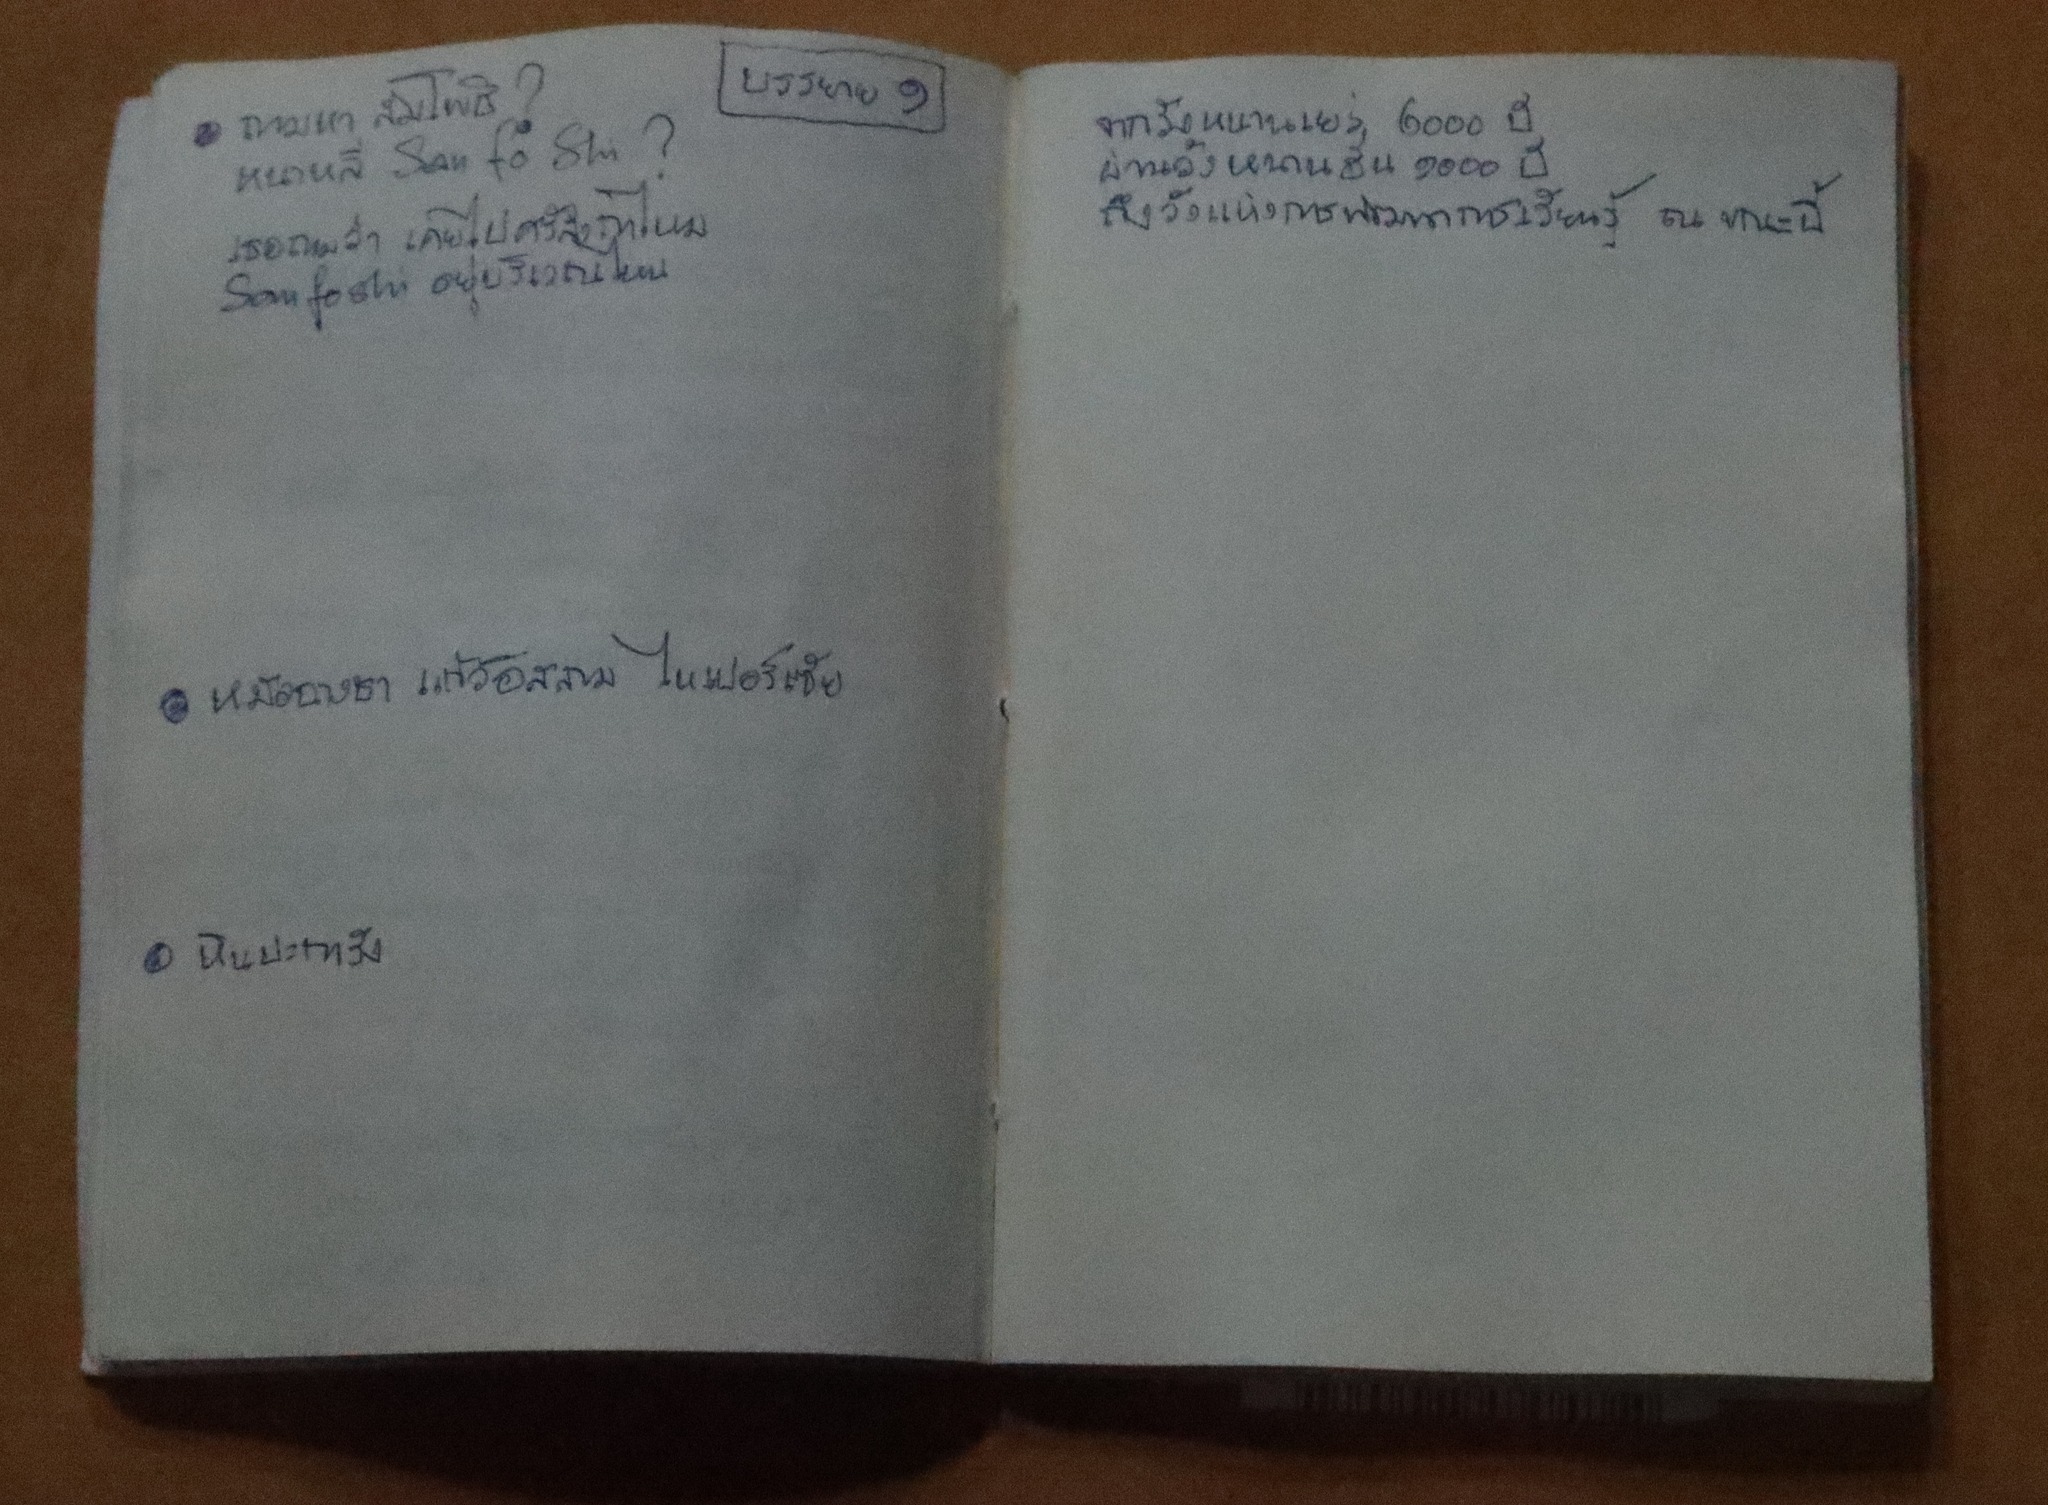 บรรยาย ๑
ถามหา สัมโพธิ?
หนาหลี Sam fo Shi ?
เธอถามว่า เคยไปศรีลังกาไหม
Sam fo shi อยู่บริเวณไหน
แก้วอิสลาม ไหเปอร์เซีย
หินปะการัง
จากวังหนานเยว่ 6000 ปี
ผ่านวังหนานฮั่น 1000 ปี
ถึงวังแห่งการพัฒนาการเรียนรู้ ณ ขณะนี้